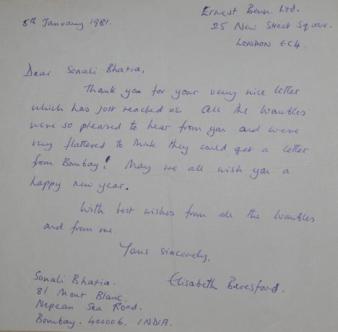 Ernest Benn Ltd.
8th January 1981.
25 New Street Square.
London EC4.
Dear Sonali Bhatia,
Thank you for your very nice letter
which has just reached us. All the Wombles
were so pleased to hear from you and were
very flattered to think they could get a letter
from Bombay! May we all wish you a
happy new year.
With best wishes from all the Wombles
and from me
Yours sincerely,
Elisabeth Beresford.
Sonali Bhatia.
81 Mont Blanc.
Nepean Sea Road.
Bombay. 400006. INDIA.